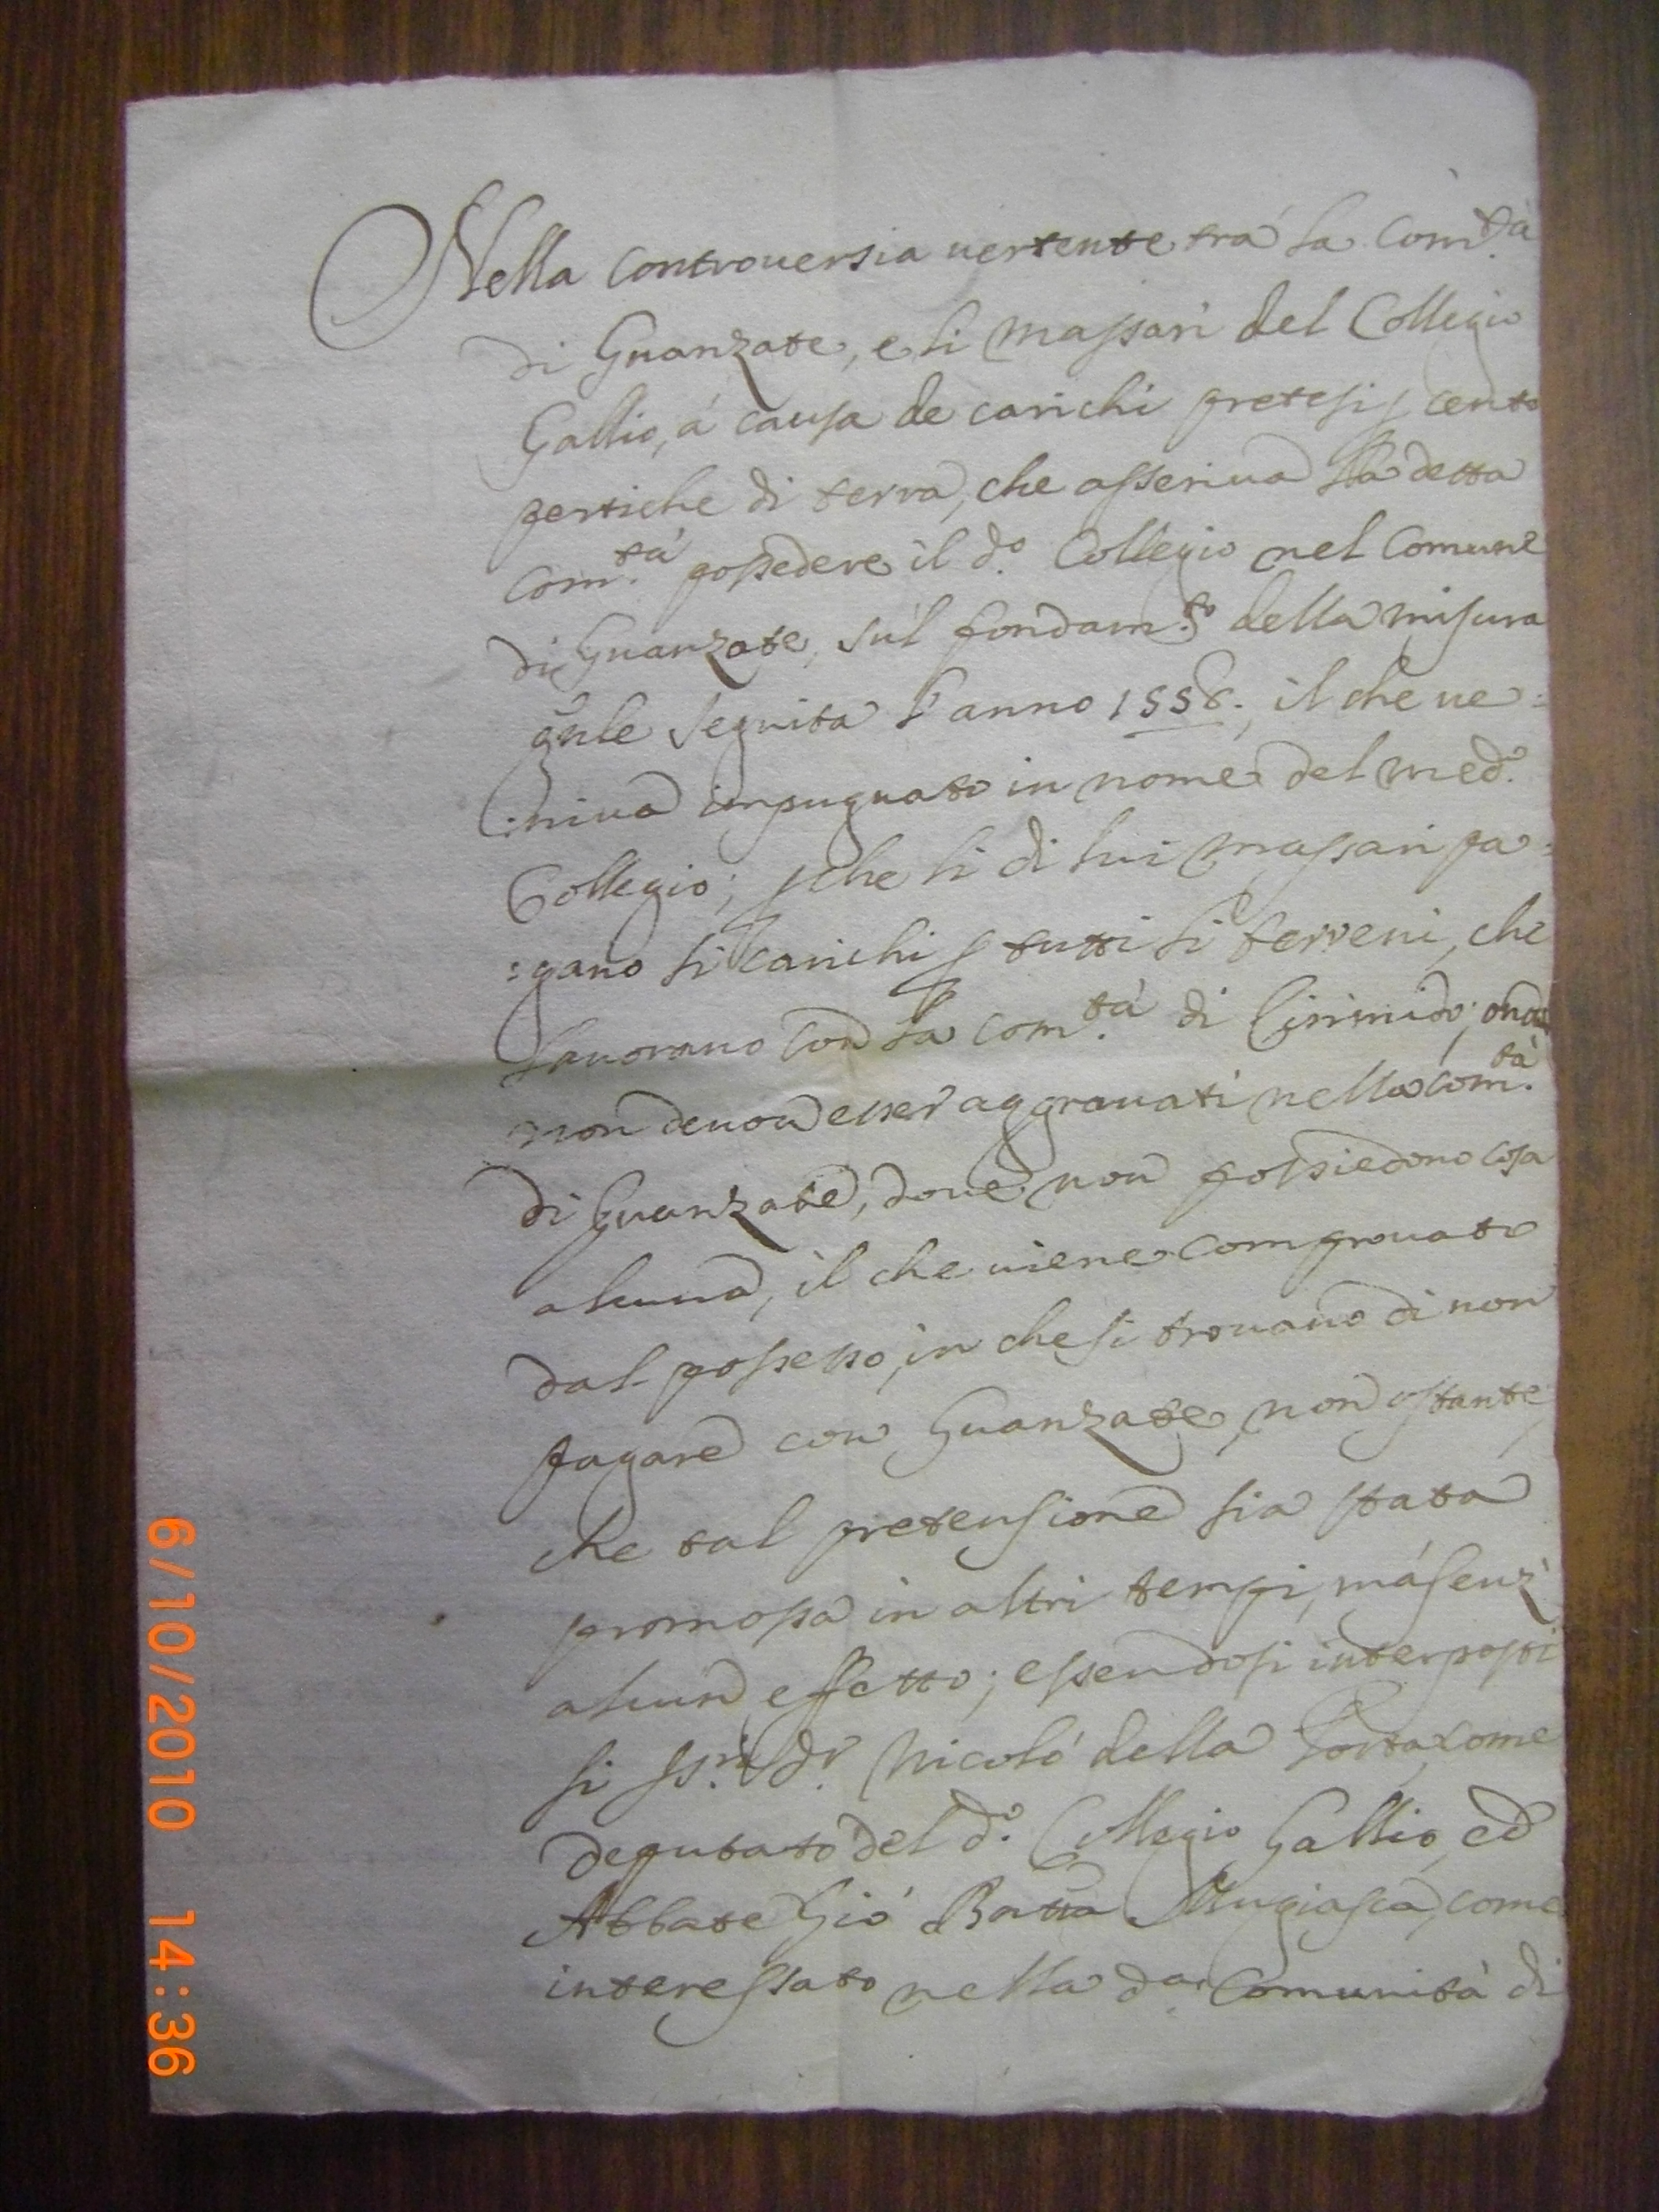 Nella controuersia uertente trà la Com.tà
di Guanzate, e li massari del Collegio
Gallio, à causa de carichi pretesi p cento
pertiche di terra, che asseriua la detta
Com.tà possedere il d.o Collegio nel Comune
di Guanzate, sul fondam.to della misura
gnle seguita l'anno 1558., il che ue=
:niua impugnato in nome del med.o
Collegio; pche li di lui massari pa=
:gano li carichi p tutti li terreni, che
lauorano con la Com.tà di Cirimido; onde
non deuon esser aggrauati nella Com.tà
di Guanzate, doue non possiedono cosa
alcuna, il che uiene comprouato
dal possesso, in che si trouano di non
pagare con Guanzate, non ostante,
che tal pretensione sia stata
promossa in altri tempi, mà senz'
alcun effetto; essendosi interposti
li SS.ri Dr. Nicolò della Porta, come
deputato del d.o Collegio Gallio, ed
Abbate Giò Batta Mugiasca, come
interessato nella d.a Comunità di
6/10/2010 14:36